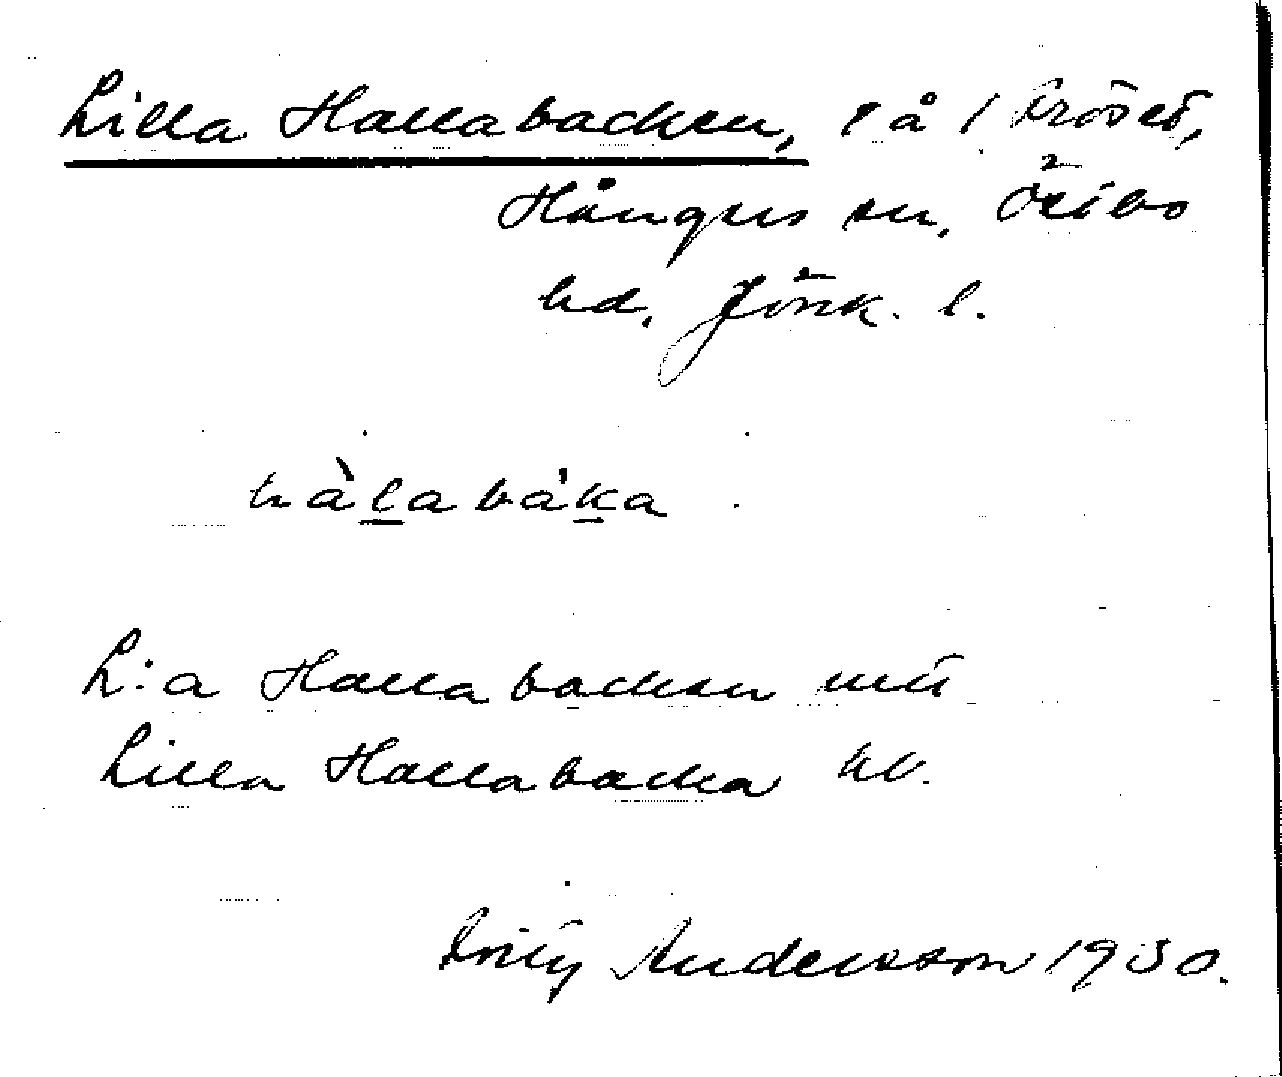 Lilla Hallabacken, l å / Fröset,
Hånger sn, Östbo
hd, Jönk. l.
hàlabáka
L:a Hallabacken mtl
Lilla Hallabacka kb.
Andersson 1930.